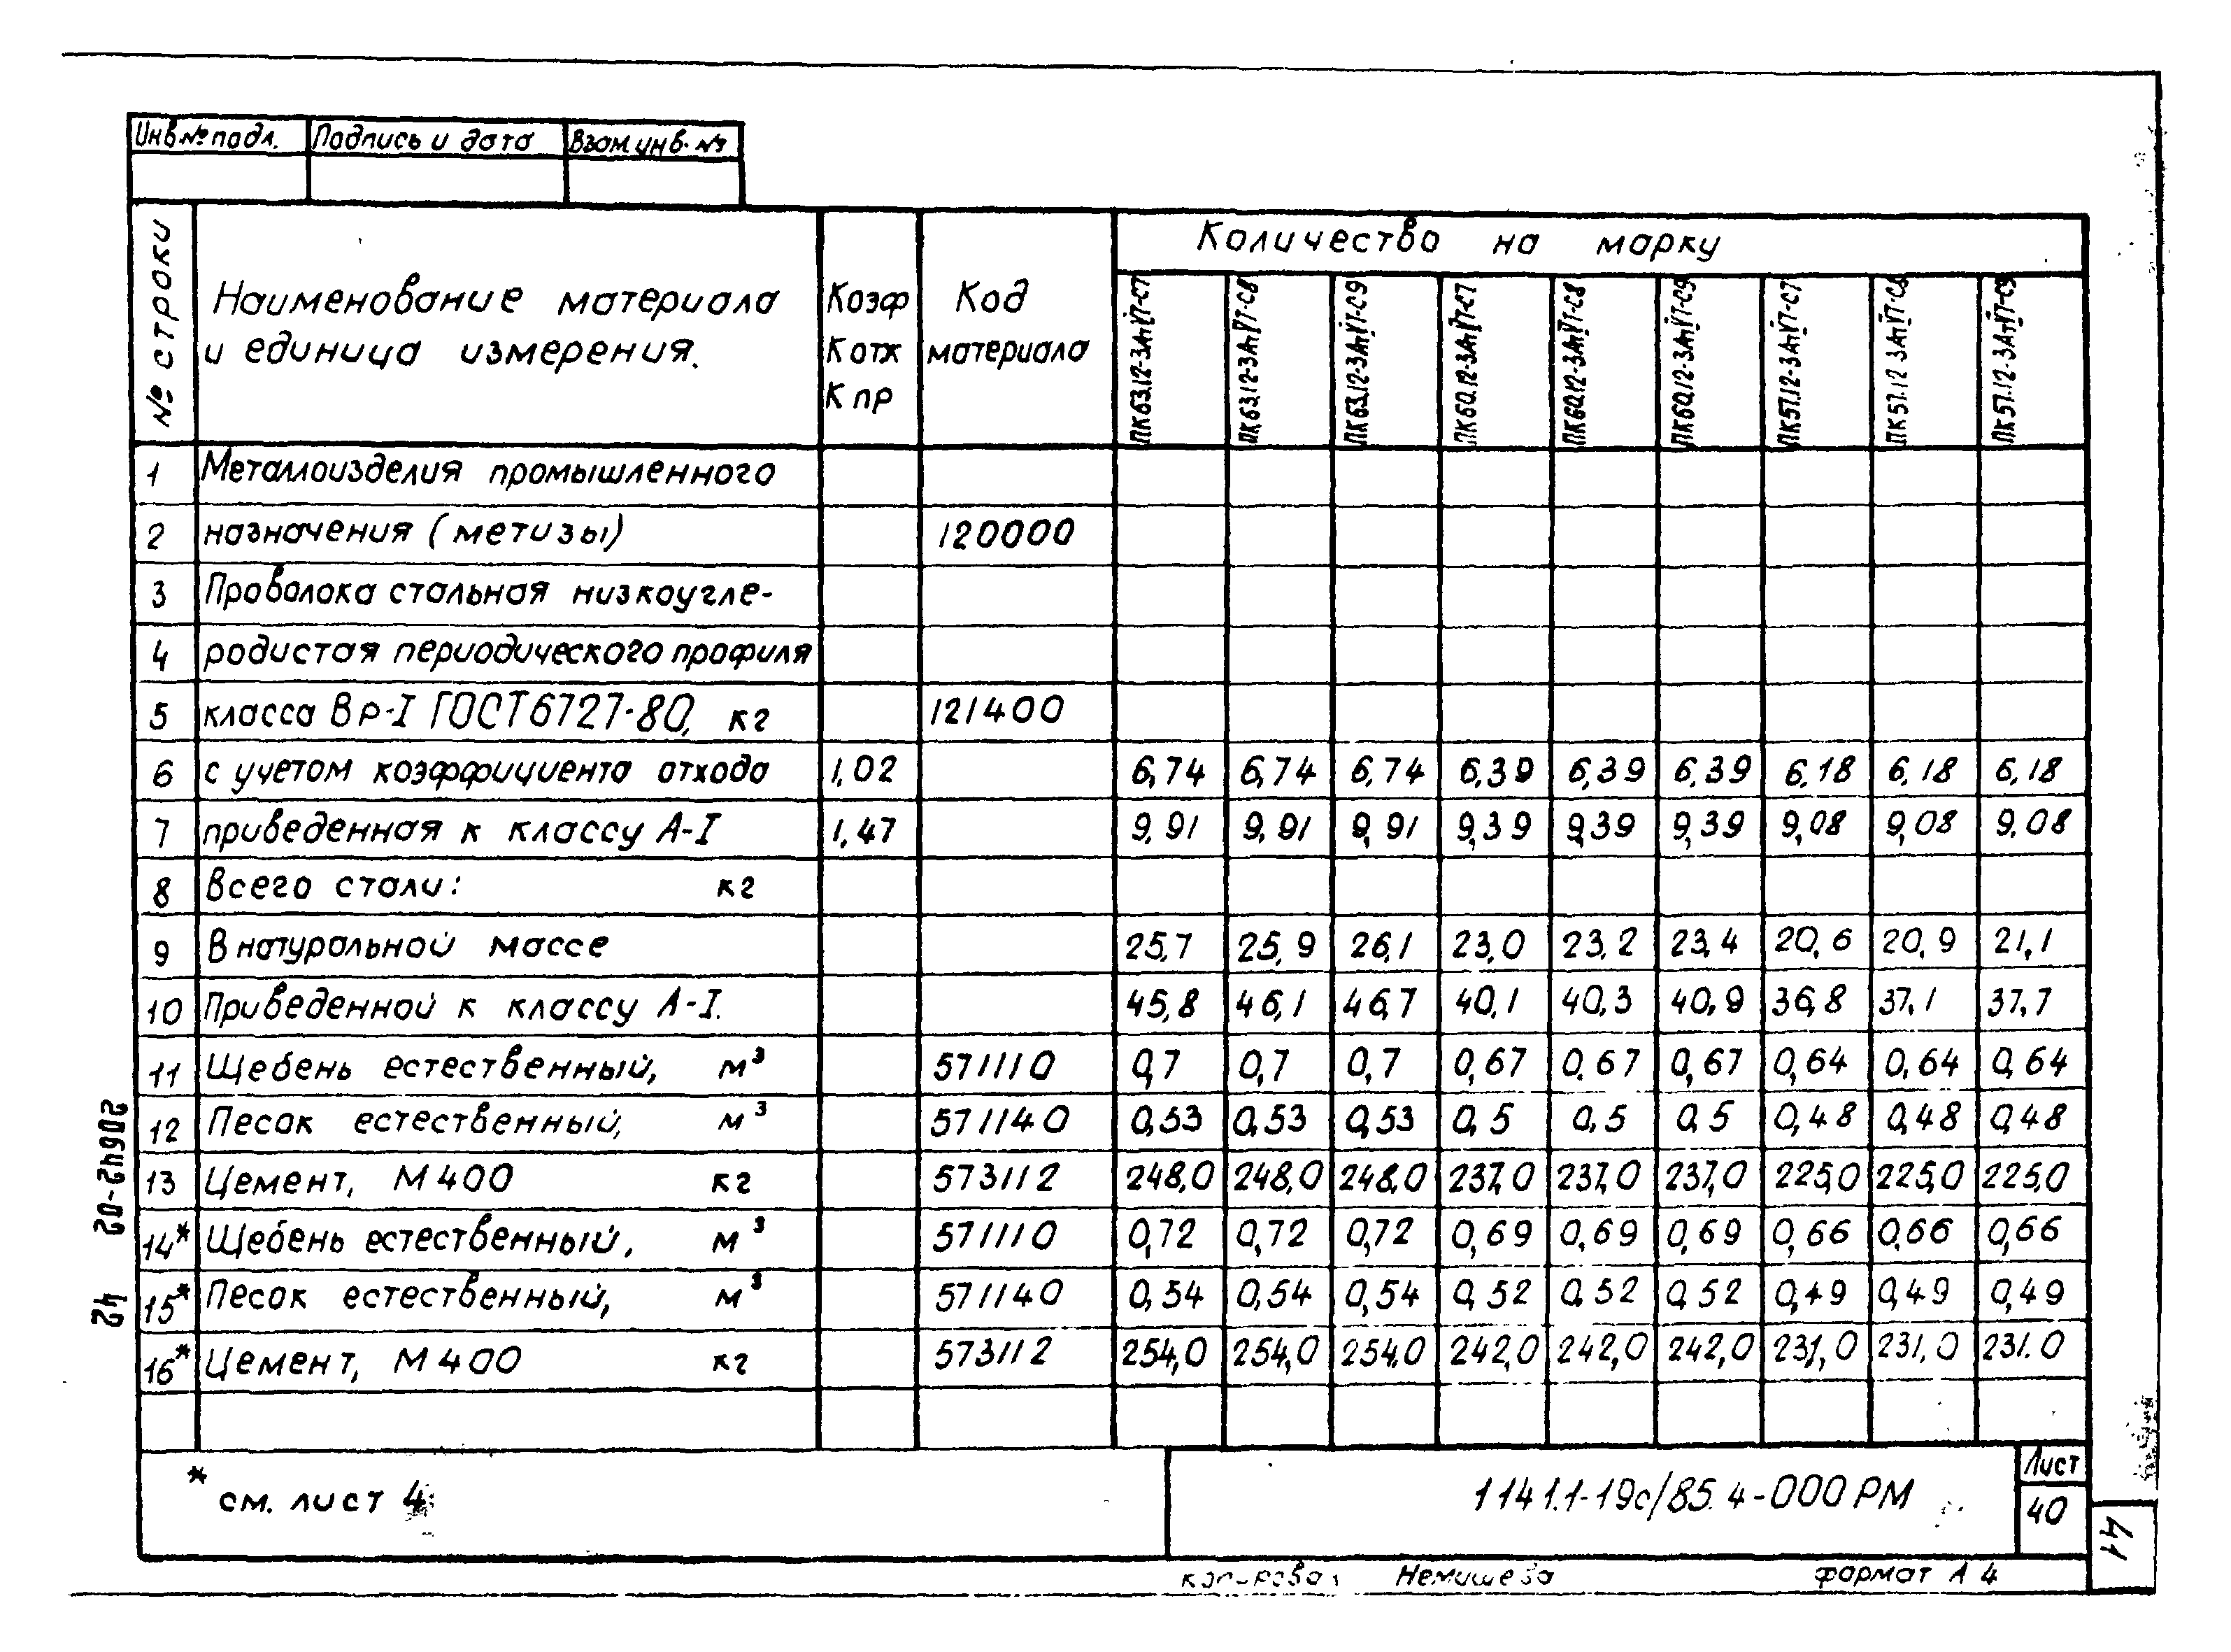 Инв № подл. Подпись и дата Взам инв. №
№ строки Наименование материала и единица измерения. Коэф Котх Кпр Код материала Количество на марку
ПК63.12-3АтVТ-С7 ПК63.12-3АтVТ-С8 ПК63.12-3АтVТ-С9 ПК60.12-3АтVТ-С7 ПК60.12-3АтVТ-С8 ПК60.12-3АтVТ-С9 ПК57.12-3АтVТ-С7 ПК57.12-3АтVТ-С8 ПК57.12-3АтVТ-С9
1 Металлоизделия промышленного
2 назначения (метизы) 120000
3 Проволока стальная низкоугле-
4 родистая периодического профиля
5 класса Вр-I ГОСТ 6727-80, кг 121400
6 с учетом коэффициента отхода 1,02 6,74 6,74 6,74 6,39 6,39 6,39 6,18 6,18 6,18
7 приведенная к классу А-I 1,47 9,91 9,91 9,91 9,39 9,39 9,39 9,08 9,08 9,08
8 Всего стали: кг
9 В натуральной массе 25,7 25,9 26,1 23,0 23,2 23,4 20,6 20,9 21,1
10 Приведенной к классу А-I. 45,8 46,1 46,7 40,1 40,3 40,9 36,8 37,1 37,7
11 Щебень естественный, м³ 571110 0,7 0,7 0,7 0,67 0.67 0,67 0,64 0,64 0,64
12 Песок естественный, м³ 571140 0,53 0,53 0,53 0,5 0,5 0,5 0,48 0,48 0,48
13 Цемент, М400 кг 573112 248,0 248,0 248,0 237,0 237,0 237,0 225,0 225,0 225,0
14* Щебень естественный, м³ 571110 0,72 0,72 0,72 0,69 0,69 0,69 0,66 0,66 0,66
15* Песок естественный, м³ 571140 0,54 0,54 0,54 0,52 0,52 0,52 0,49 0,49 0,49
16* Цемент, М400 кг 573112 254,0 254,0 254,0 242,0 242,0 242,0 231,0 231,0 231.0
20642-02 42
* см. лист 4
1141.1-19с/85.4-000 РМ
Лист
40
41
Немишева формат А4